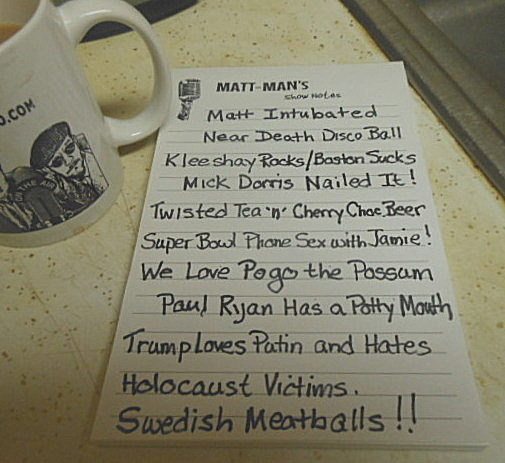 O.COM
ON THE AIR
MATT-MAN'S
SHOW NOTES
Matt Intubated
Near Death Disco Ball
Kleeshay Rocks/Boston Sucks
Mick Dorris Nailed It!
Twisted Tea 'n' Cherry Choc Beer
Super Bowl Phone Sex with Jamie!
We Love Pogo the Possum
Paul Ryan Has a Potty Mouth
Trump Loves Putin and Hates
Holocaust Victims.
Swedish Meatballs!!